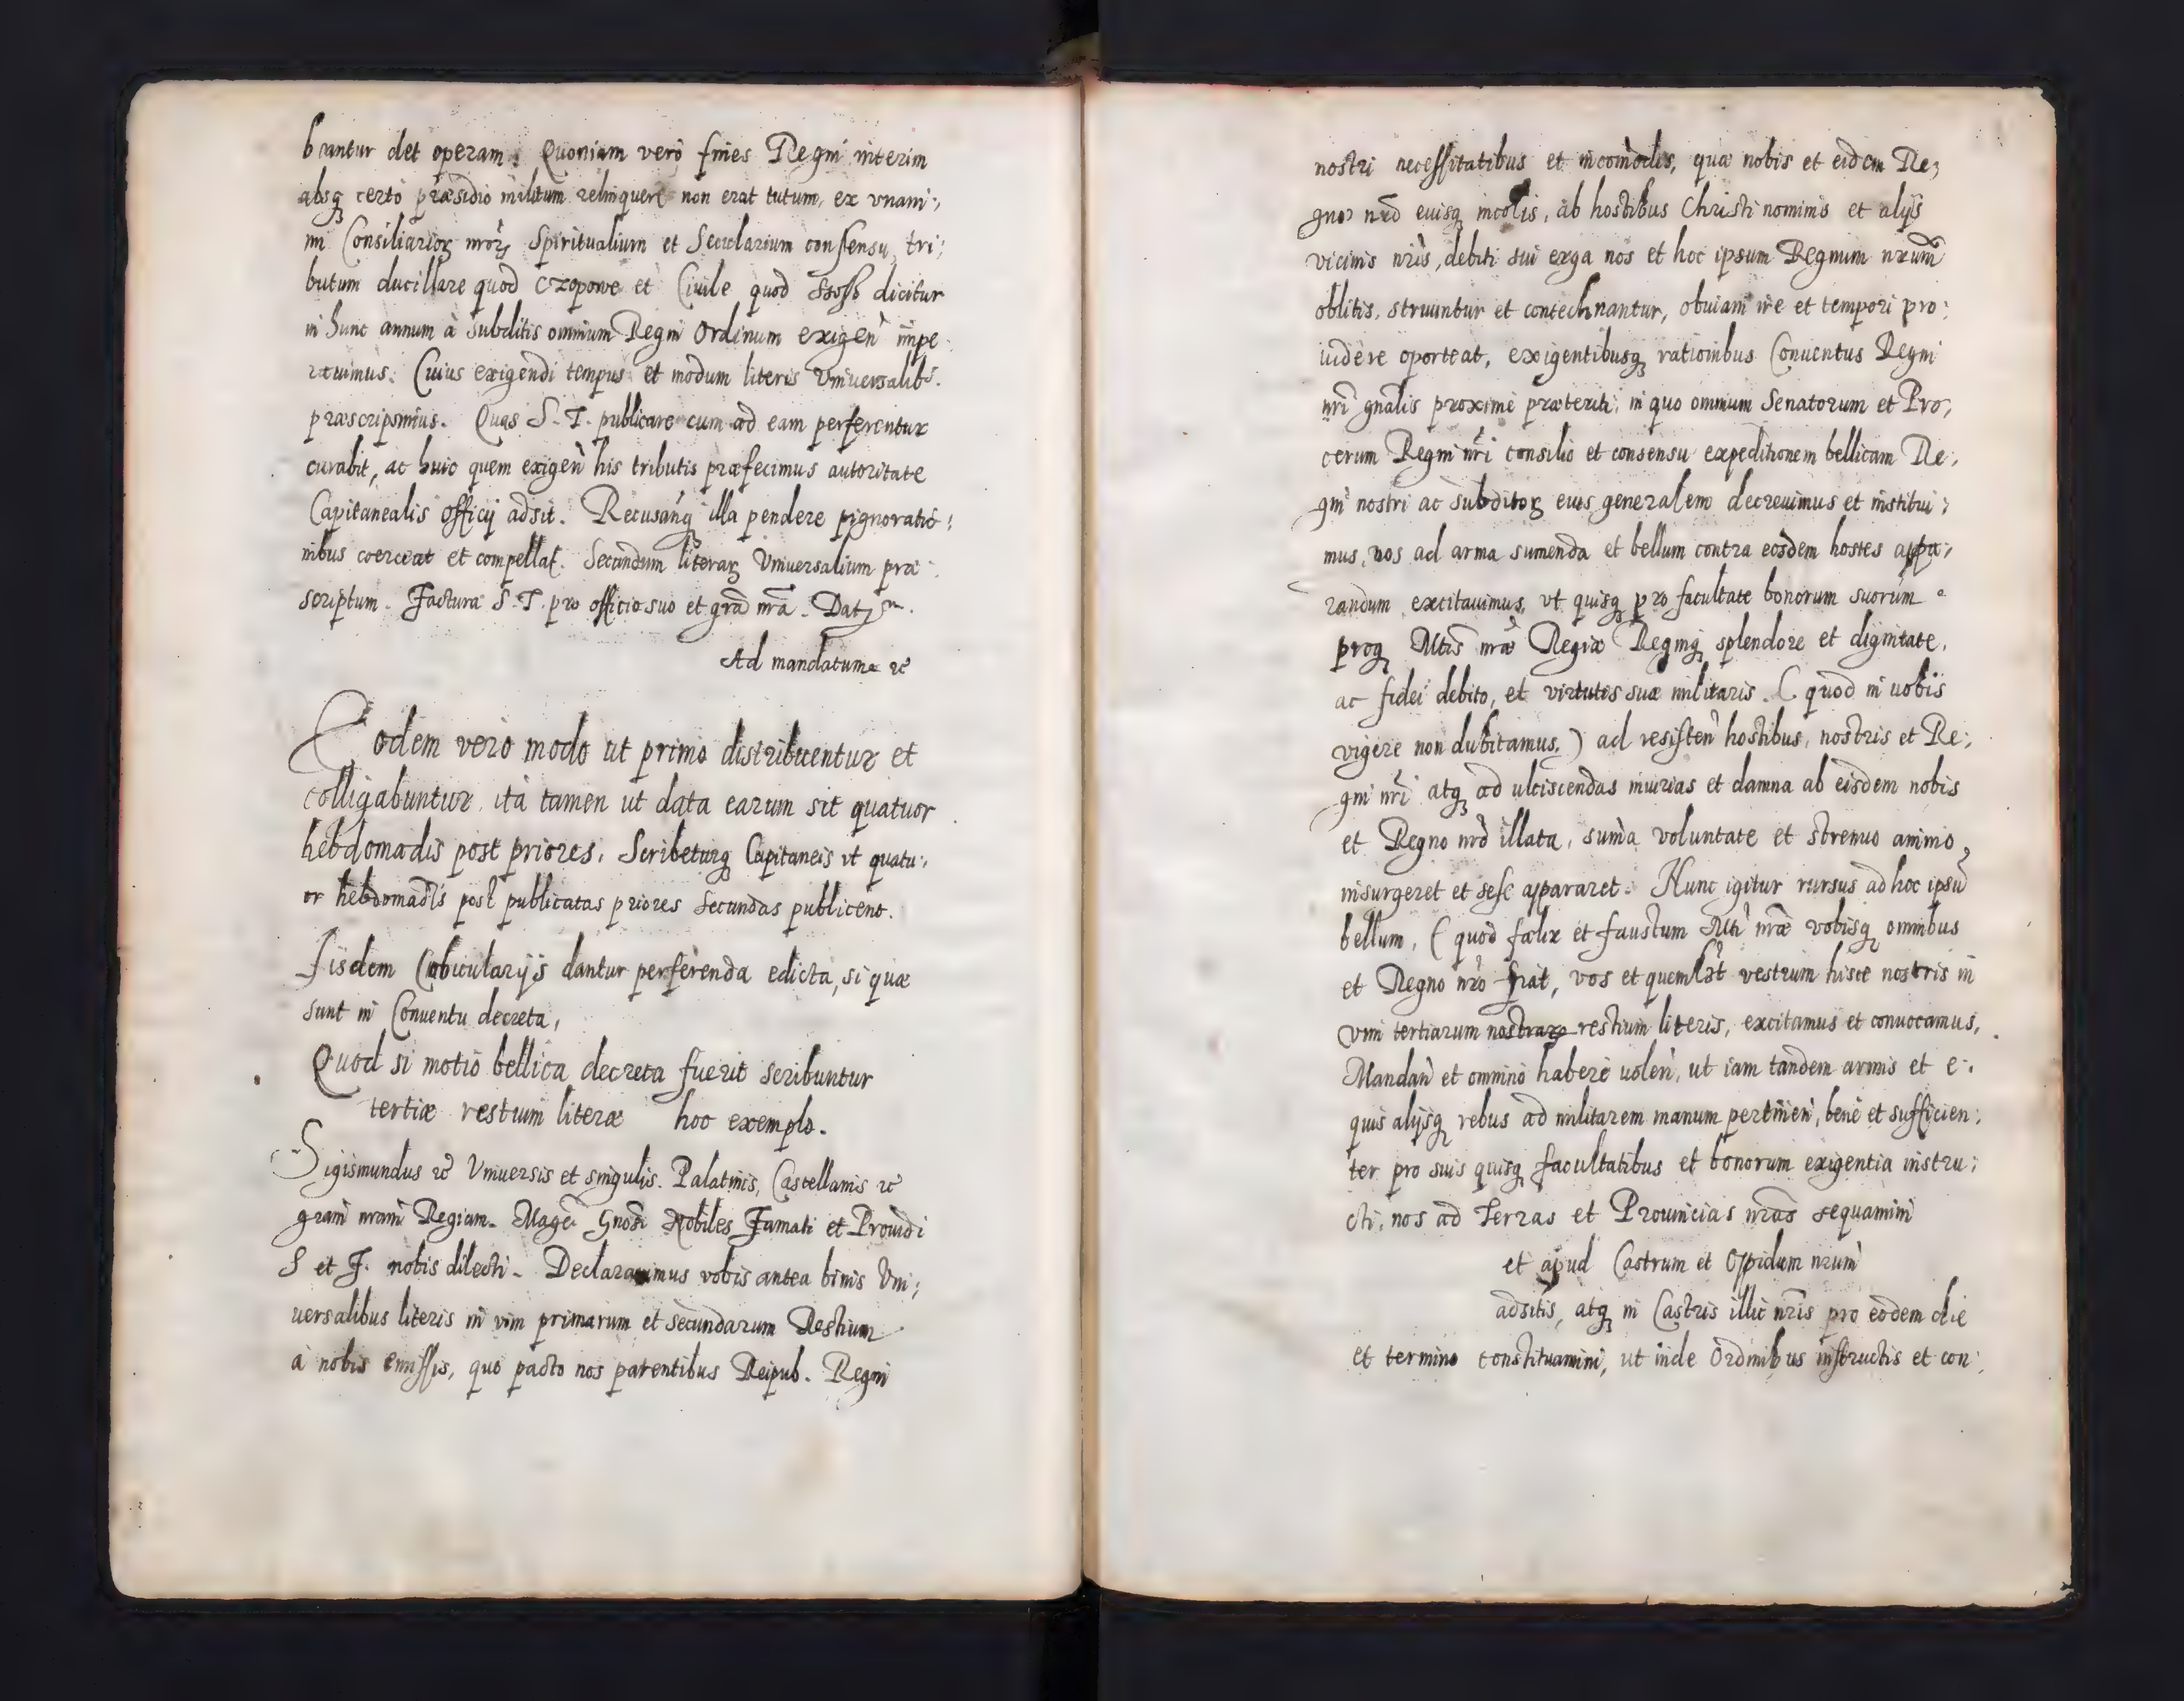 beantur det operam. Quoniam vero fines Regni interim
absq certo præsidio militum relinquere non erat tutum, ex vnani:,
mi Consiliarioꝝ nroꝝ Spiritualium et Secularium consensu, tri:
butum ducillare quod Czopowe et Ciuile quod Szosz dicitur
in hunc annum à subditis omnium Regni Ordinum exigen̄ impe
rauimus. Cuius exigendi tempus et modum literis Vniuersalibs.
præscripsimus. Quas S. T. publicare cum ad eam perferentur
curabit, ac huic quem exigen̄ his tributis præfecimus autoritate
Capitanealis officij adsit. Recusan̄q illa pendere pignoratio:
nibus coerceat et compellat. Secundum literaꝝ Vniuersalium præ:
scriptum. Factura S. T. pro officio suo et gr̄a nr̄a. Dat
Ad mandatum rc
Eodem vero modo ut primo distribuentur et
colligabuntur, ita tamen ut data earum sit quatuor
hebdomadis post priores, Scribeturq Capitaneis vt quatu:,
or hebdomadis post publicatas priores secundas publicent.
Iisdem Cubicularijs dantur perferenda edicta, si quæ
sunt in Conuentu decreta,
Quod si motio bellica decreta fuerit scribuntur
tertiæ restium literæ hoc exemplo.
Sigismundus rc Vniuersis et singulis. Palatinis, Castellanis rc
gram nram Regiam. Magci Gnosi Nobiles Famati et Prouidi
S et F. nobis dilecti. Declarauimus vobis antea binis Vni:,
uersalibus literis in vim primarum et secundarum Restium
à nobis emissis, quo pacto nos parentibus Reipub. Regni
nostri necessitatibus et incom̄odis, quæ nobis et eidem Re,
gno nr̄o euisq incolis, ab hostibus Christi nominis et alijs
vicinis nr̄is, debiti sui erga nos et hoc ipsum Regnum nrum̄
oblitis, struuntur et contechnantur, obuiam ire et tempori pro:
uidere oporteat, exigentibusq rationibus Conuentus Regni
nr̄i gn̄alis proxime præteriti, in quo omnium Senatorum et Pro,
cerum Regni nr̄i consilio et consensu expeditionem bellicam Re:,
gni nostri ac subditoꝝ eius generalem decreuimus et institui:
mus, vos ad arma sumenda et bellum contra eosdem hostes appa:,
randum excitauimus, vt quisq pro facultate bonorum suorum
proq Mtis nræ Regiæ Regniq splendore et dignitate,
ac fidei debito, et virtutis suæ militaris. ( quod in uobis
vigere non dubitamus.) ad resisten̄ hostibus, nostris et Re:,
gni nr̄i atq ad ulciscendas iniurias et damna ab eisdem nobis
et Regno nr̄o illata, sum̄a voluntate et strenuo animo
insurgeret et sese appararet. Nunc igitur rursus ad hoc ipsū
bellum, ( quod fælix et faustum Mti nr̄æ vobisq omnibus
et Regno nr̄o fiat, vos et quemlꝫt vestrum hisce nostris in
vim tertiarum nostraꝝ restium literis, excitamus et conuocamus,
Mandan̄ et omnino habere uolen̄, ut iam tandem armis et e:
quis alijsq rebus ad militarem manum pertinen̄, bene et sufficien:
ter pro suis quisq facultatibus et bonorum exigentia instru:
cti, nos ad Terras et Prouincias nr̄as sequamini
et apud Castrum et Oppidum nrum̄
adsitis, atq in Castris illic nr̄is pro eodem die
et termino constituamini, ut inde Ordinibus instructis et con: